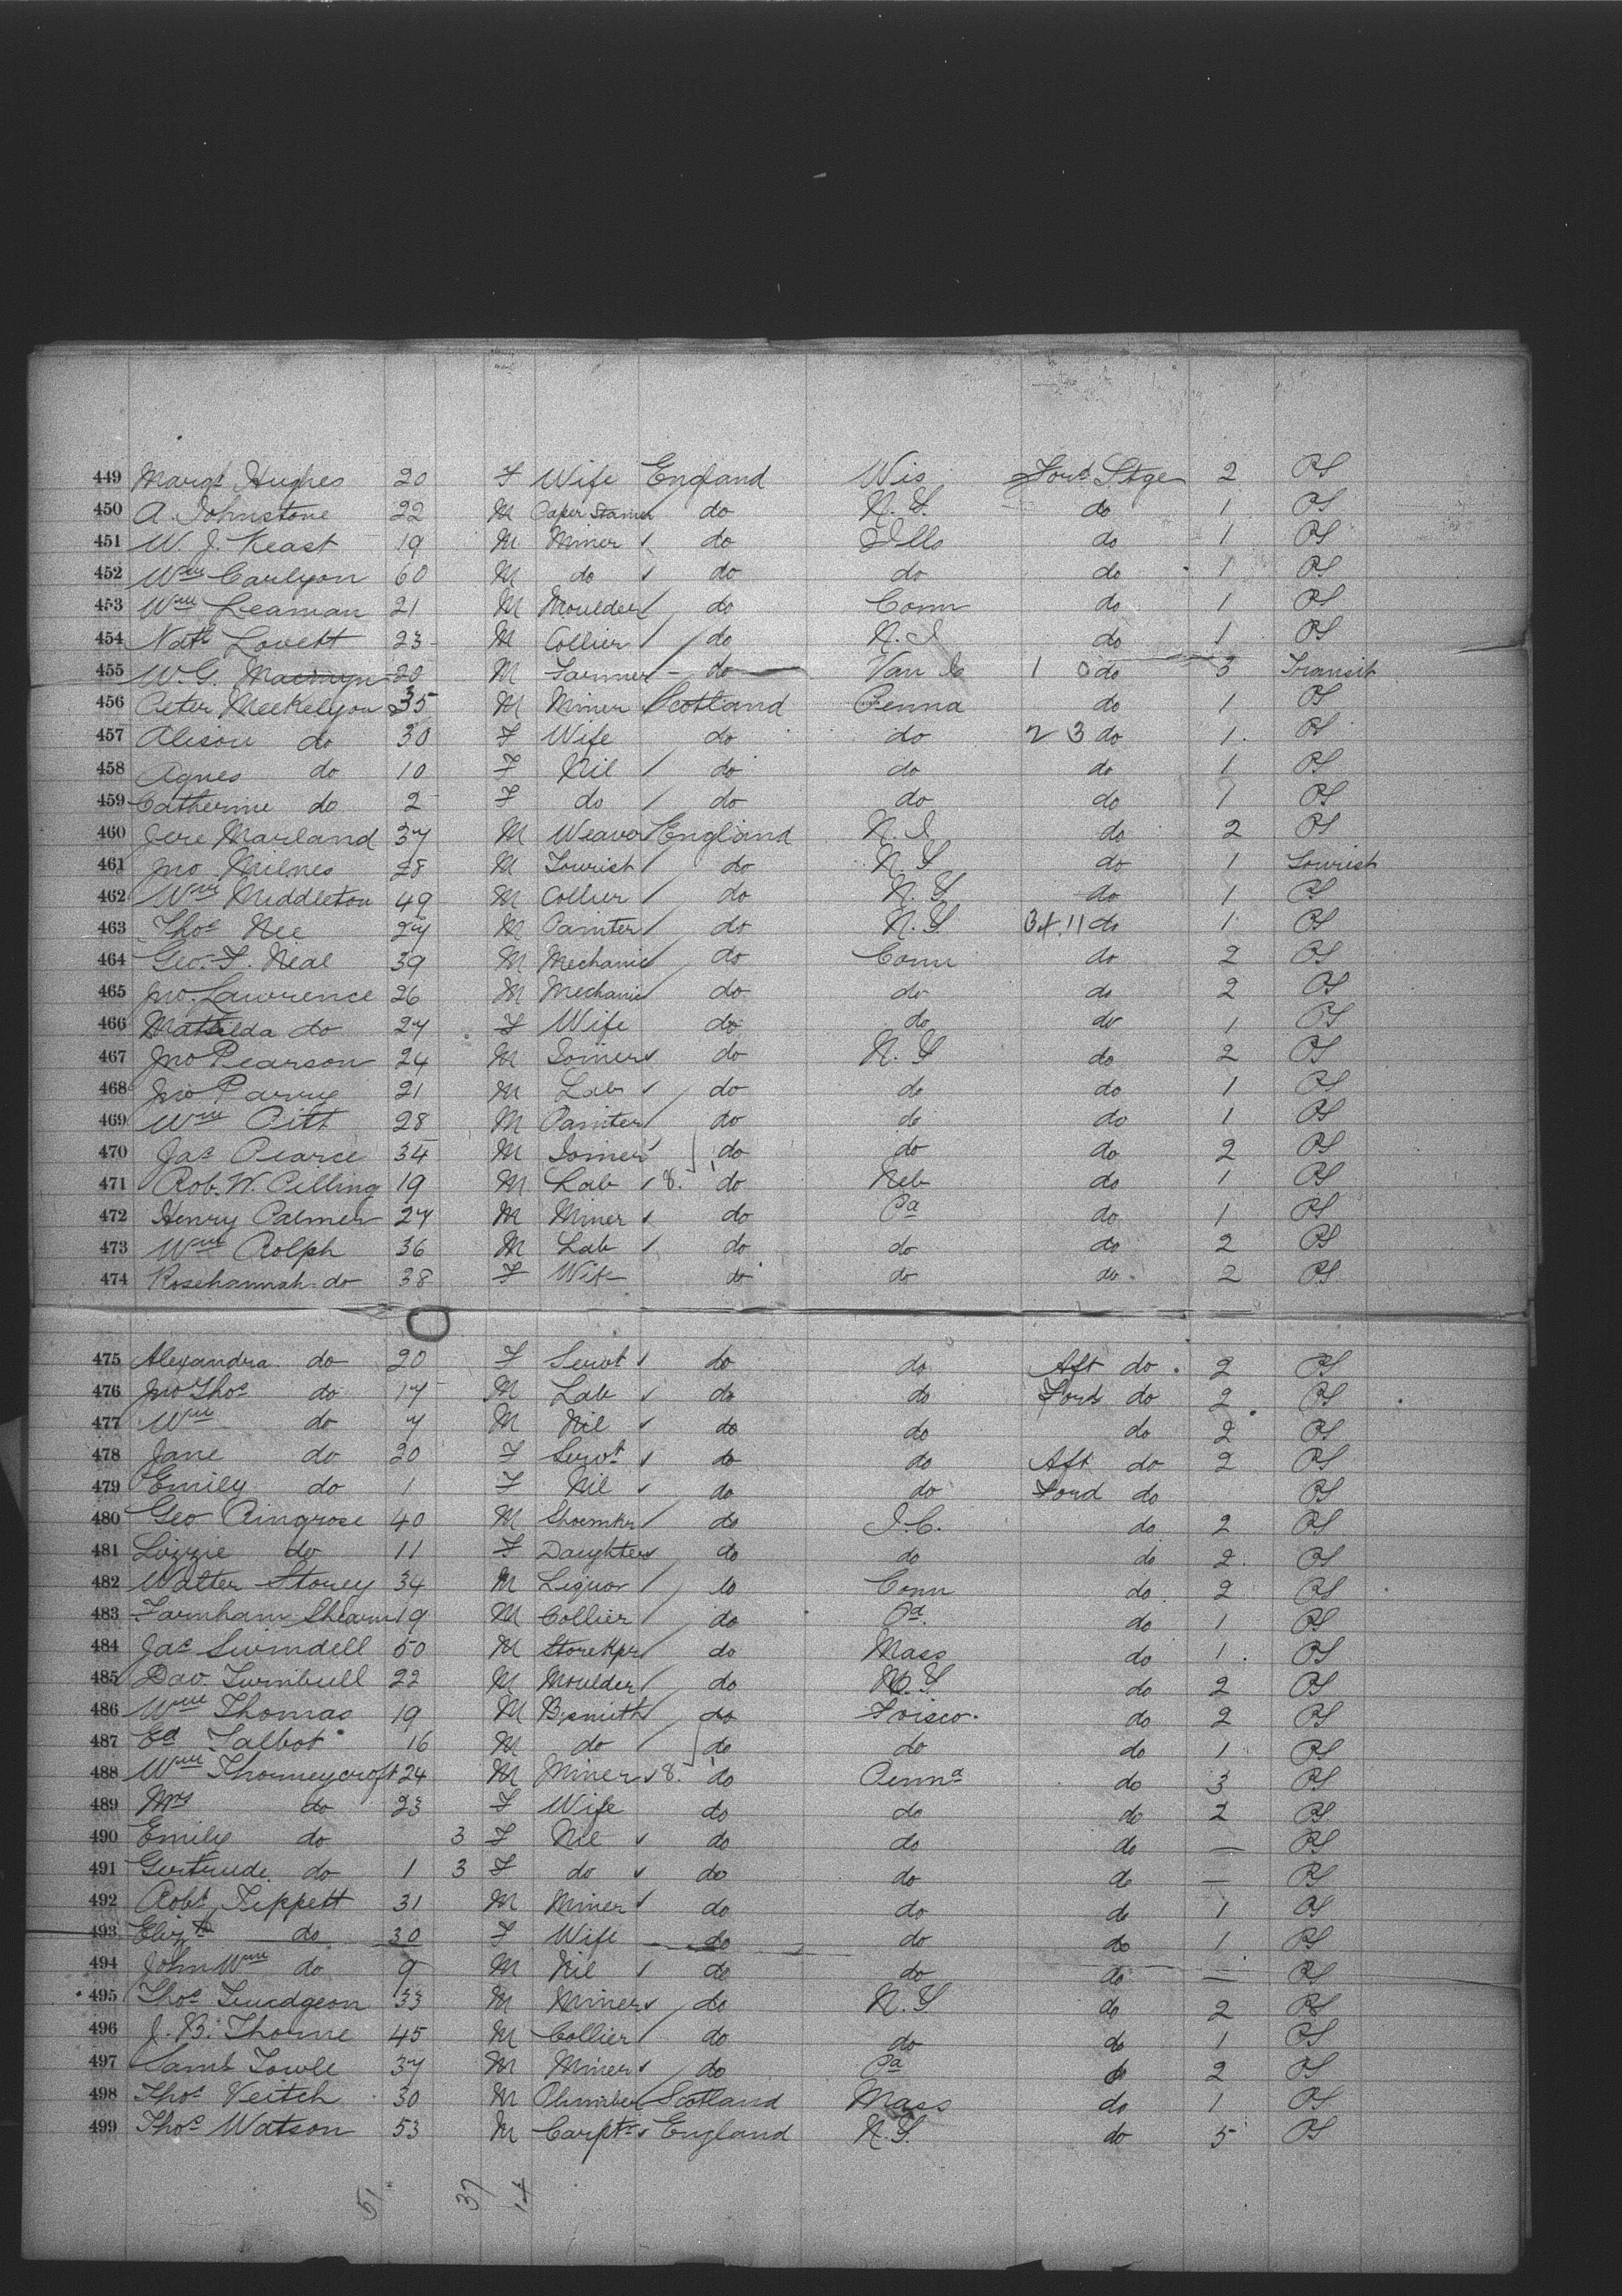 449 Margt Hughes 20 F Wife England Wis Ford Stge 2 PS
450 A. Johnstone 22 M Paper Stainer do N.Y. do 1 PS
451 W. J. Keast 19 M Miner do Ills do 1 PS
452 Wm Carlyon 60 M do do do do 1 PS
453 Wm Leaman 21 M Moulder do Conn do 1 PS
454 Nath Lovett 23 M Collier do N.J. do 1 PS
455 W. G. 20 M Farmer do Van Is 1 0 do 3 Transit
456 Peter Meekelyon 35 M Miner Scotland Penna do 1 PS
457 Alison do 30 F Wife do do 2 3 do 1 PS
458 Agnes do 10 F Nil do do do 1 PS
459 Catherine do 2 F do do do do 1 PS
460 Jere Marland 37 M Weaver England N.J. do 2 PS
461 Jno Milnes 28 M Tourist do N.Y. do 1 Tourist
462 Wm Middleton 49 M Collier do N.Y. do 1 PS
463 Thos Nee 27 M Painter do N.Y. 34.11 do 1 PS
464 Geo. F. Neal 39 M Mechanic do Conn do 2 PS
465 Jno. Lawrence 26 M Mechanic do do do 2 PS
466 Mathilda do 27 F Wife do do do 1 PS
467 Jno Pearson 24 M Joiner do N.Y. do 2 PS
468 Jno Parry 21 M Lab do do do 1 PS
469 Wm Pitt 28 M Painter do do do 1 PS
470 Jas Pearce 34 M Joiner do do do 2 PS
471 Rob. W. Pilling 19 M Lab 8. do Neb do 1 PS
472 Henry Palmer 27 M Miner do Pa do 1 PS
473 Wm Rolph 36 M Lab do do do 2 PS
474 Rosehannah do 38 F Wife do do do 2 PS
475 Alexandra do 20 F Servt do do Aft do 2 PS
476 Jno Thos do 17 M Lab do do Ford do 2 PS
477 Wm do 7 M Nil do do do 2 PS
478 Jane do 20 F Servt do do Aft do 2 PS
479 Emily do 1 F Nil do do Ford do PS
480 Geo Ringrose 40 M Shoemkr do J.C. do 2 PS
481 Lizzie do 11 F Daughter do do do 2 PS
482 Walter Storey 34 M Liquor do Conn do 2 PS
483 Farnham Shearn 19 M Collier do Pa. do 1 PS
484 Jas Swindell 50 M Storekpr do Mass do 1 PS
485 Dav. Turnbull 22 M Moulder do N.Y. do 2 PS
486 Wm Thomas 19 M B.smith do Frisco. do 2 PS
487 Ed Talbot 16 M do do do do 1 PS
488 Wm Thorneycroft 24 M Miner 8. do Penna do 3 PS
489 Mrs do 23 F Wife do do do 2 PS
490 Emily do 3 F Nil do do do — PS
491 Gertrude do 1 3 F do do do do — PS
492 Robt Tippett 31 M Miner do do do 1 PS
493 Elizth do 30 F Wife do do do 1 PS
494 John Wm do 9 M Nil do do do — PS
495 Thos 33 M Miner do N.Y. do 2 PS
496 J. B. Thorne 45 M Collier do do do 1 PS
497 Saml Towle 37 M Miner do Pa do 2 PS
498 Thos Veitch 30 M Plumber Scotland Mass do 1 PS
499 Thos Watson 53 M Carptr England N.Y. do 5 PS
51 37 14